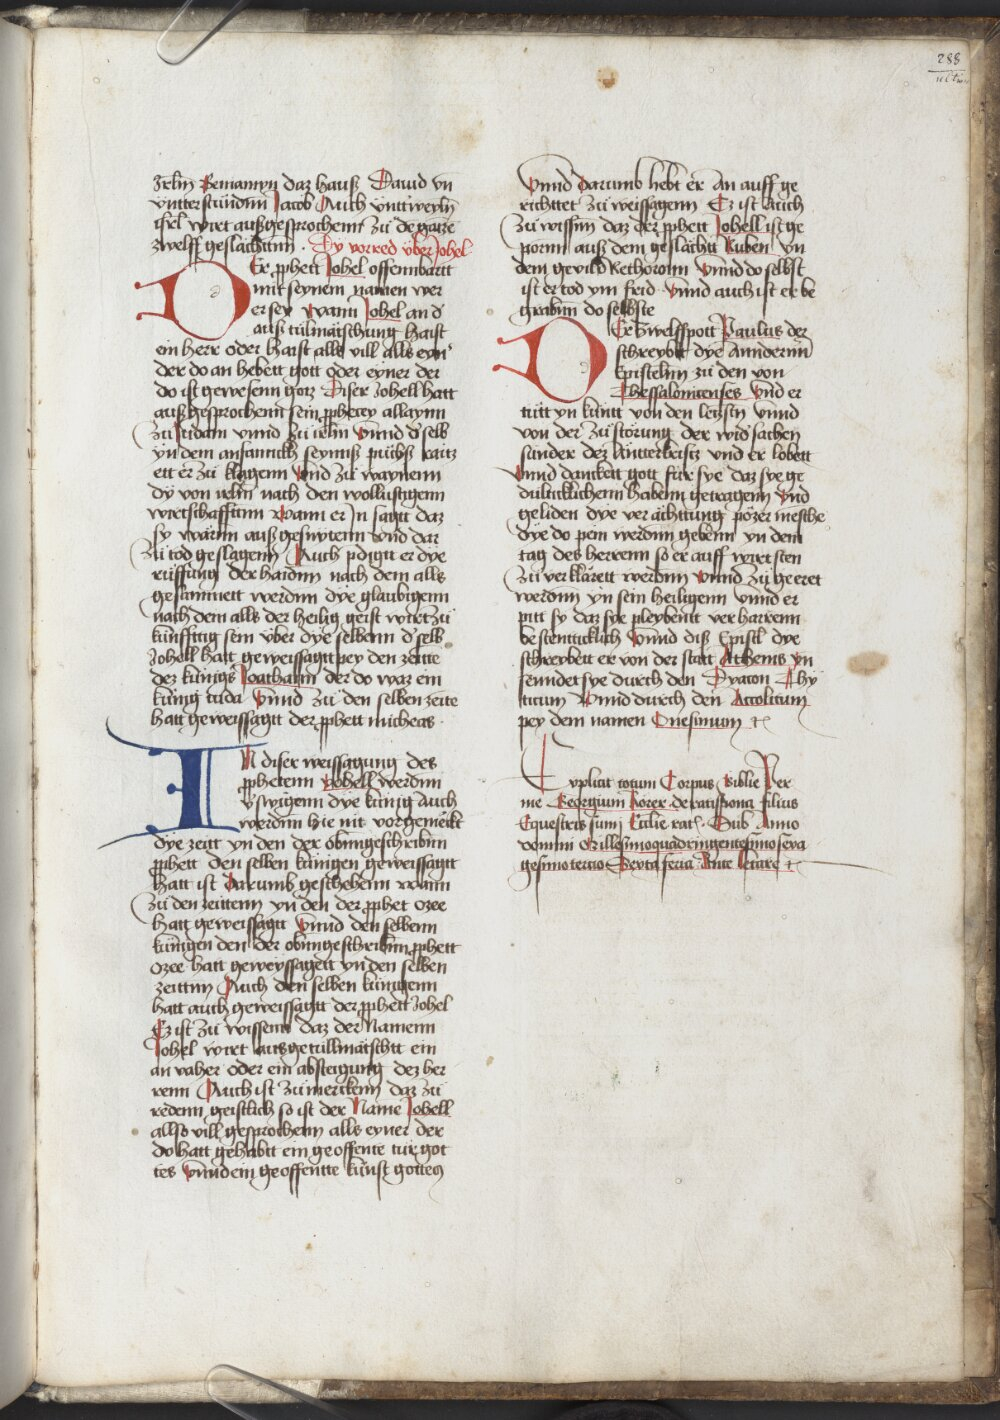 288
Jrlm Bemamyn daz hauß Dauid vn̄
vntterstundnn Jacob Auch vnttweyln̄
isrl wirt außgesprochenn zu dē gantzē
zwelff geslachttnn . Dy vorred vber Johel
Der p̄phett Johel offennbartt
mit seynem namen wer
er sey wann Johel an d̓
auß tulmatschung haist
ein herr oder haist alls vill alls eyn̓
der do an hebett gott oder eyner der
do ist gewesenn gotz Diser Johell hatt
außgesprochenn sein p̄phecey allaynn
zu Judam vnnd zu irlm vnnd d̓ selb
yn dem anfanncklich seynns puchß raitz
ett er zu klagenn vnd zu waynenn
dy von irlm nach den wollustigenn
wirtschafftnn wann er Jn sagtt daz
sy warnn auß gesnytenn vnd dar
zu tod geslagenn Auch p̄digtt er dye
ruffung der haidnn nach dem alls
gesammett werdnn dye glaubigenn
nach dem alls der heilig geist wirtt zu
kunfftig sein vber dye selbenn d̓ selb
Johell hatt geweissagtt pey den zeitte
dez kunigs Joathann der do waz ein
kunig iuda vnnd zu den selben zeite
hatt geweissagtt der p̄phett micheas
In diser weissagung des
p̄phetenn yohell werdnn
v̓swigenn dye kunig auch
werdnn hie nit vorgemerkt
dye zeitt yn den der obnngeschribnn
p̄phett den selben kunigen geweissagtt
hatt ist darumb geschehenn wann
zu den zeittenn yn den der p̄phet ozee
hatt geweissagtt vnnd den selbenn
kunigen den der obnngeschribnn p̄phett
ozee hatt geweyssagett yn den selben
zeittnn Auch den selben kunigenn
hatt auch geweissagtt der p̄phett Johel
Ez ist zu wissenn daz der Namenn
Johel wirt ausgetullmatschtt ein
an vaher oder ein absteigung dez her
renn Auch ist zu merckenn daz zu
redenn geistlich so ist der Name Johell
allso vill gesprochenn alls eyner der
do hatt gehabtt ein geoffente tur got
tes vnnd ein geoffentte kunst gottes
Vnnd darumb hebt er an auff ge
richttet zu weissagenn Ez ist auch
zu wissnn daz der p̄phett Johell ist ge
pornn auß dem geslachtt Ruben vn̄
dem gevild Bethoronn vnnd do selbst
ist er tod ym frid vnnd auch ist er be
grabnn do selbste
Der zwelffpott Paulus der
schreybtt dye Anndernn
Epistelnn zu den von
Thessalonicenses vnd er
tutt yn kuntt von den letzstn vnnd
von der zustorung der widsachen
sunder dez lautterkeitz vnd er lobett
vnnd danckett gott fur sye daz sye ge
dulticklichenn habenn getragenn vnd
geliden dye ver achttung pozer mēsche
dye do pein werdnn gebenn yn dem
tag des herrenn so er auff wirt sten
zu verklarett werdnn vnnd zu geeret
werdnn yn sein heiligenn vnnd er
pitt sy daz sye pleybentt verharrenn
bestenticklich vnnd diß Epistl dye
schreybett er von der statt Athenis vn̄
senndet sye durch den Dyacon Thy
ticum vnnd durch den Accolitum
pey dem namen Onesimum etc̄
Explicit totum Corpus Biblie Per
me Georgium Rorer de ratispona filius
Equestris sum Cilie rat. Sub Anno
domini Millesimoquadringentesimosexa
gesimotercio Sexta feria Ante letare etc̄